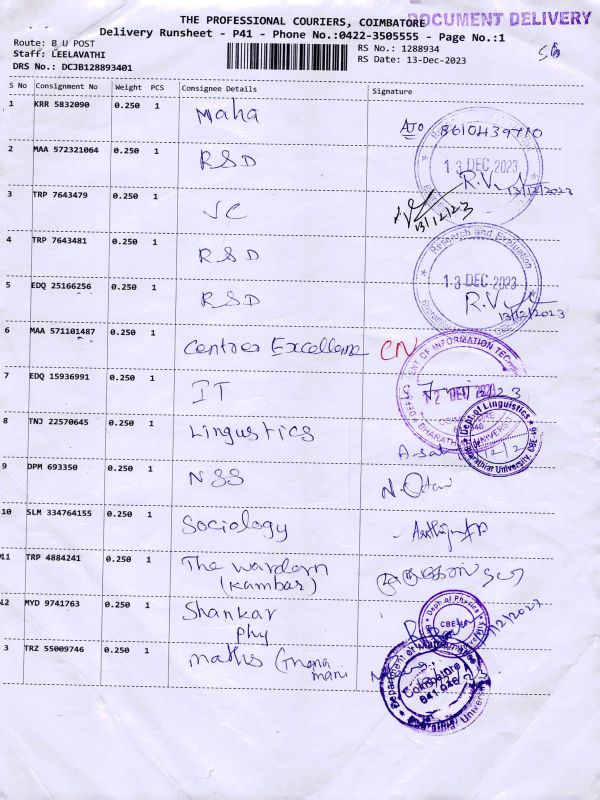 THE PROFESSIONAL COURIERS, COIMBATORE
DOCUMENT DELIVERY
Delivery Runsheet - P41 - Phone No.:0422-3505555 - Page No.:1
Route: B U POST
Staff: LEELAVATHI
DRS No.: DCJB128893401
RS No.: 1288934
RS Date: 13-Dec-2023
S No Consignment No Weight PCS Consignee Details Signature
1 KRR 5832090 0.250 1 Maha 8610439770
2 MAA 572321064 0.250 1 RSD
13 DEC 2023
13/12/2023
3 TRP 7643479 0.250 1 VC 13/12/23
4 TRP 7643481 0.250 1 RSD
Research and Evaluation
13 DEC 2023
5 EDQ 25166256 0.250 1 RSD
13/12/2023
6 MAA 571101487 0.250 1 Centres Excellence
OF INFORMATION
7 EDQ 15936991 0.250 1 IT
8 TNJ 22570645 0.250 1 Lingustics
Dept.of Linguistics
Bharathiar University, CBE-46
9 DPM 693350 0.250 1 NSS
10 SLM 334764155 0.250 1 Sociology
11 TRP 4884241 0.250 1 The wardern
(Kambar)
12 MYD 9741763 0.250 1 Shankar
Phy
Dept of Physics
3 TRZ 55009746 0.250 1 maths (Gnana
mani
Coimbatore
641 046